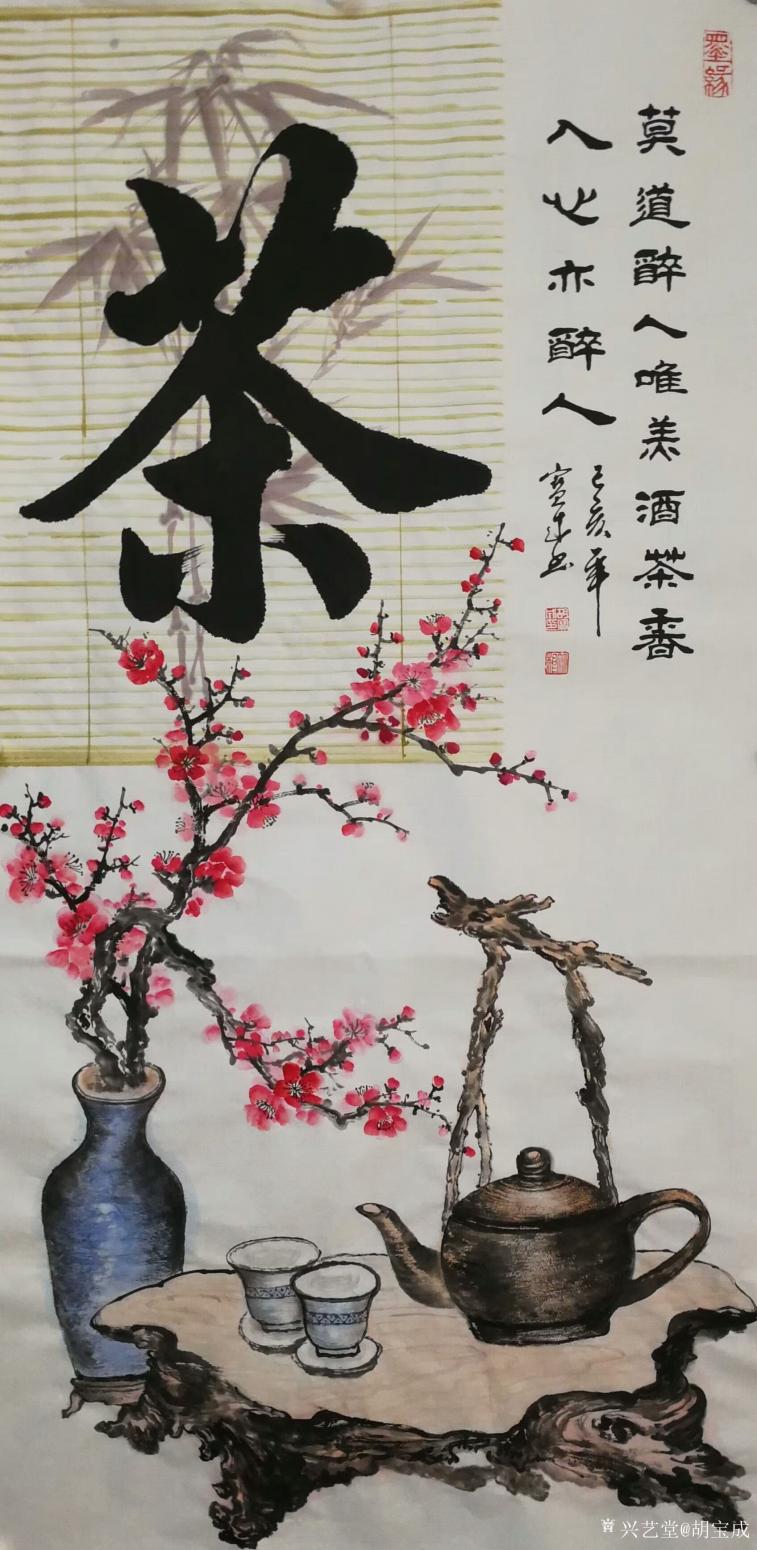 墨缘
莫道醉人唯美酒茶香
入心亦醉人
己亥年
宝成书
茶
兴艺堂@胡宝成